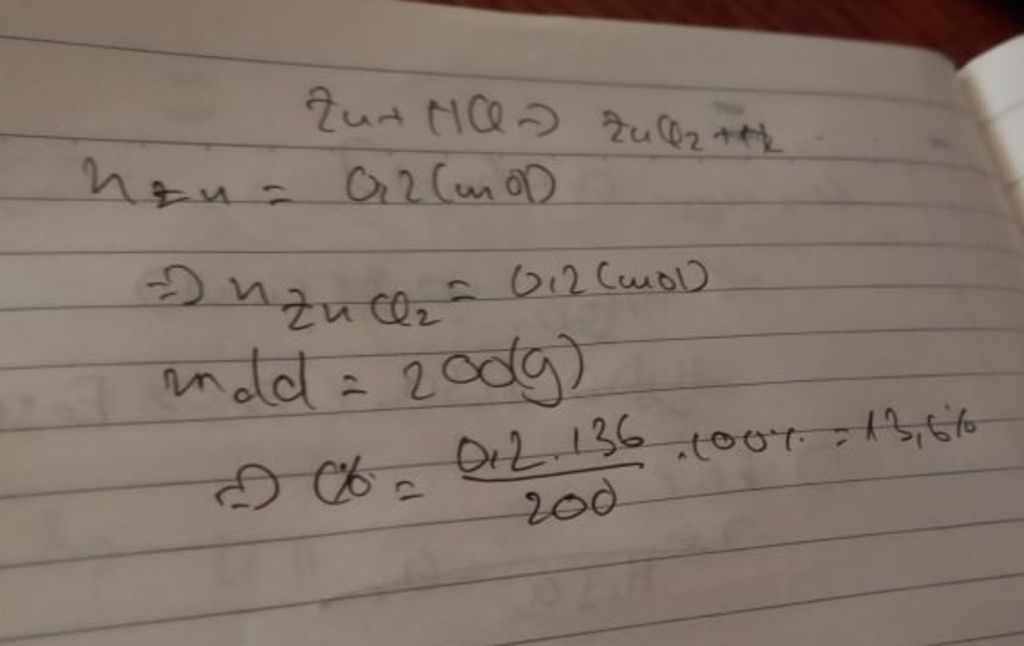 Zn + HCl => ZnCl2 + H2
nZn = 0,2 (mol)
=> nZnCl2 = 0,2 (mol)
mdd = 200(g)
=> C% = 0,2.136 / 200 .100% = 13,6%